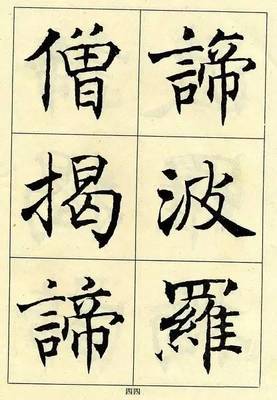 諦波羅
僧揭諦
四四